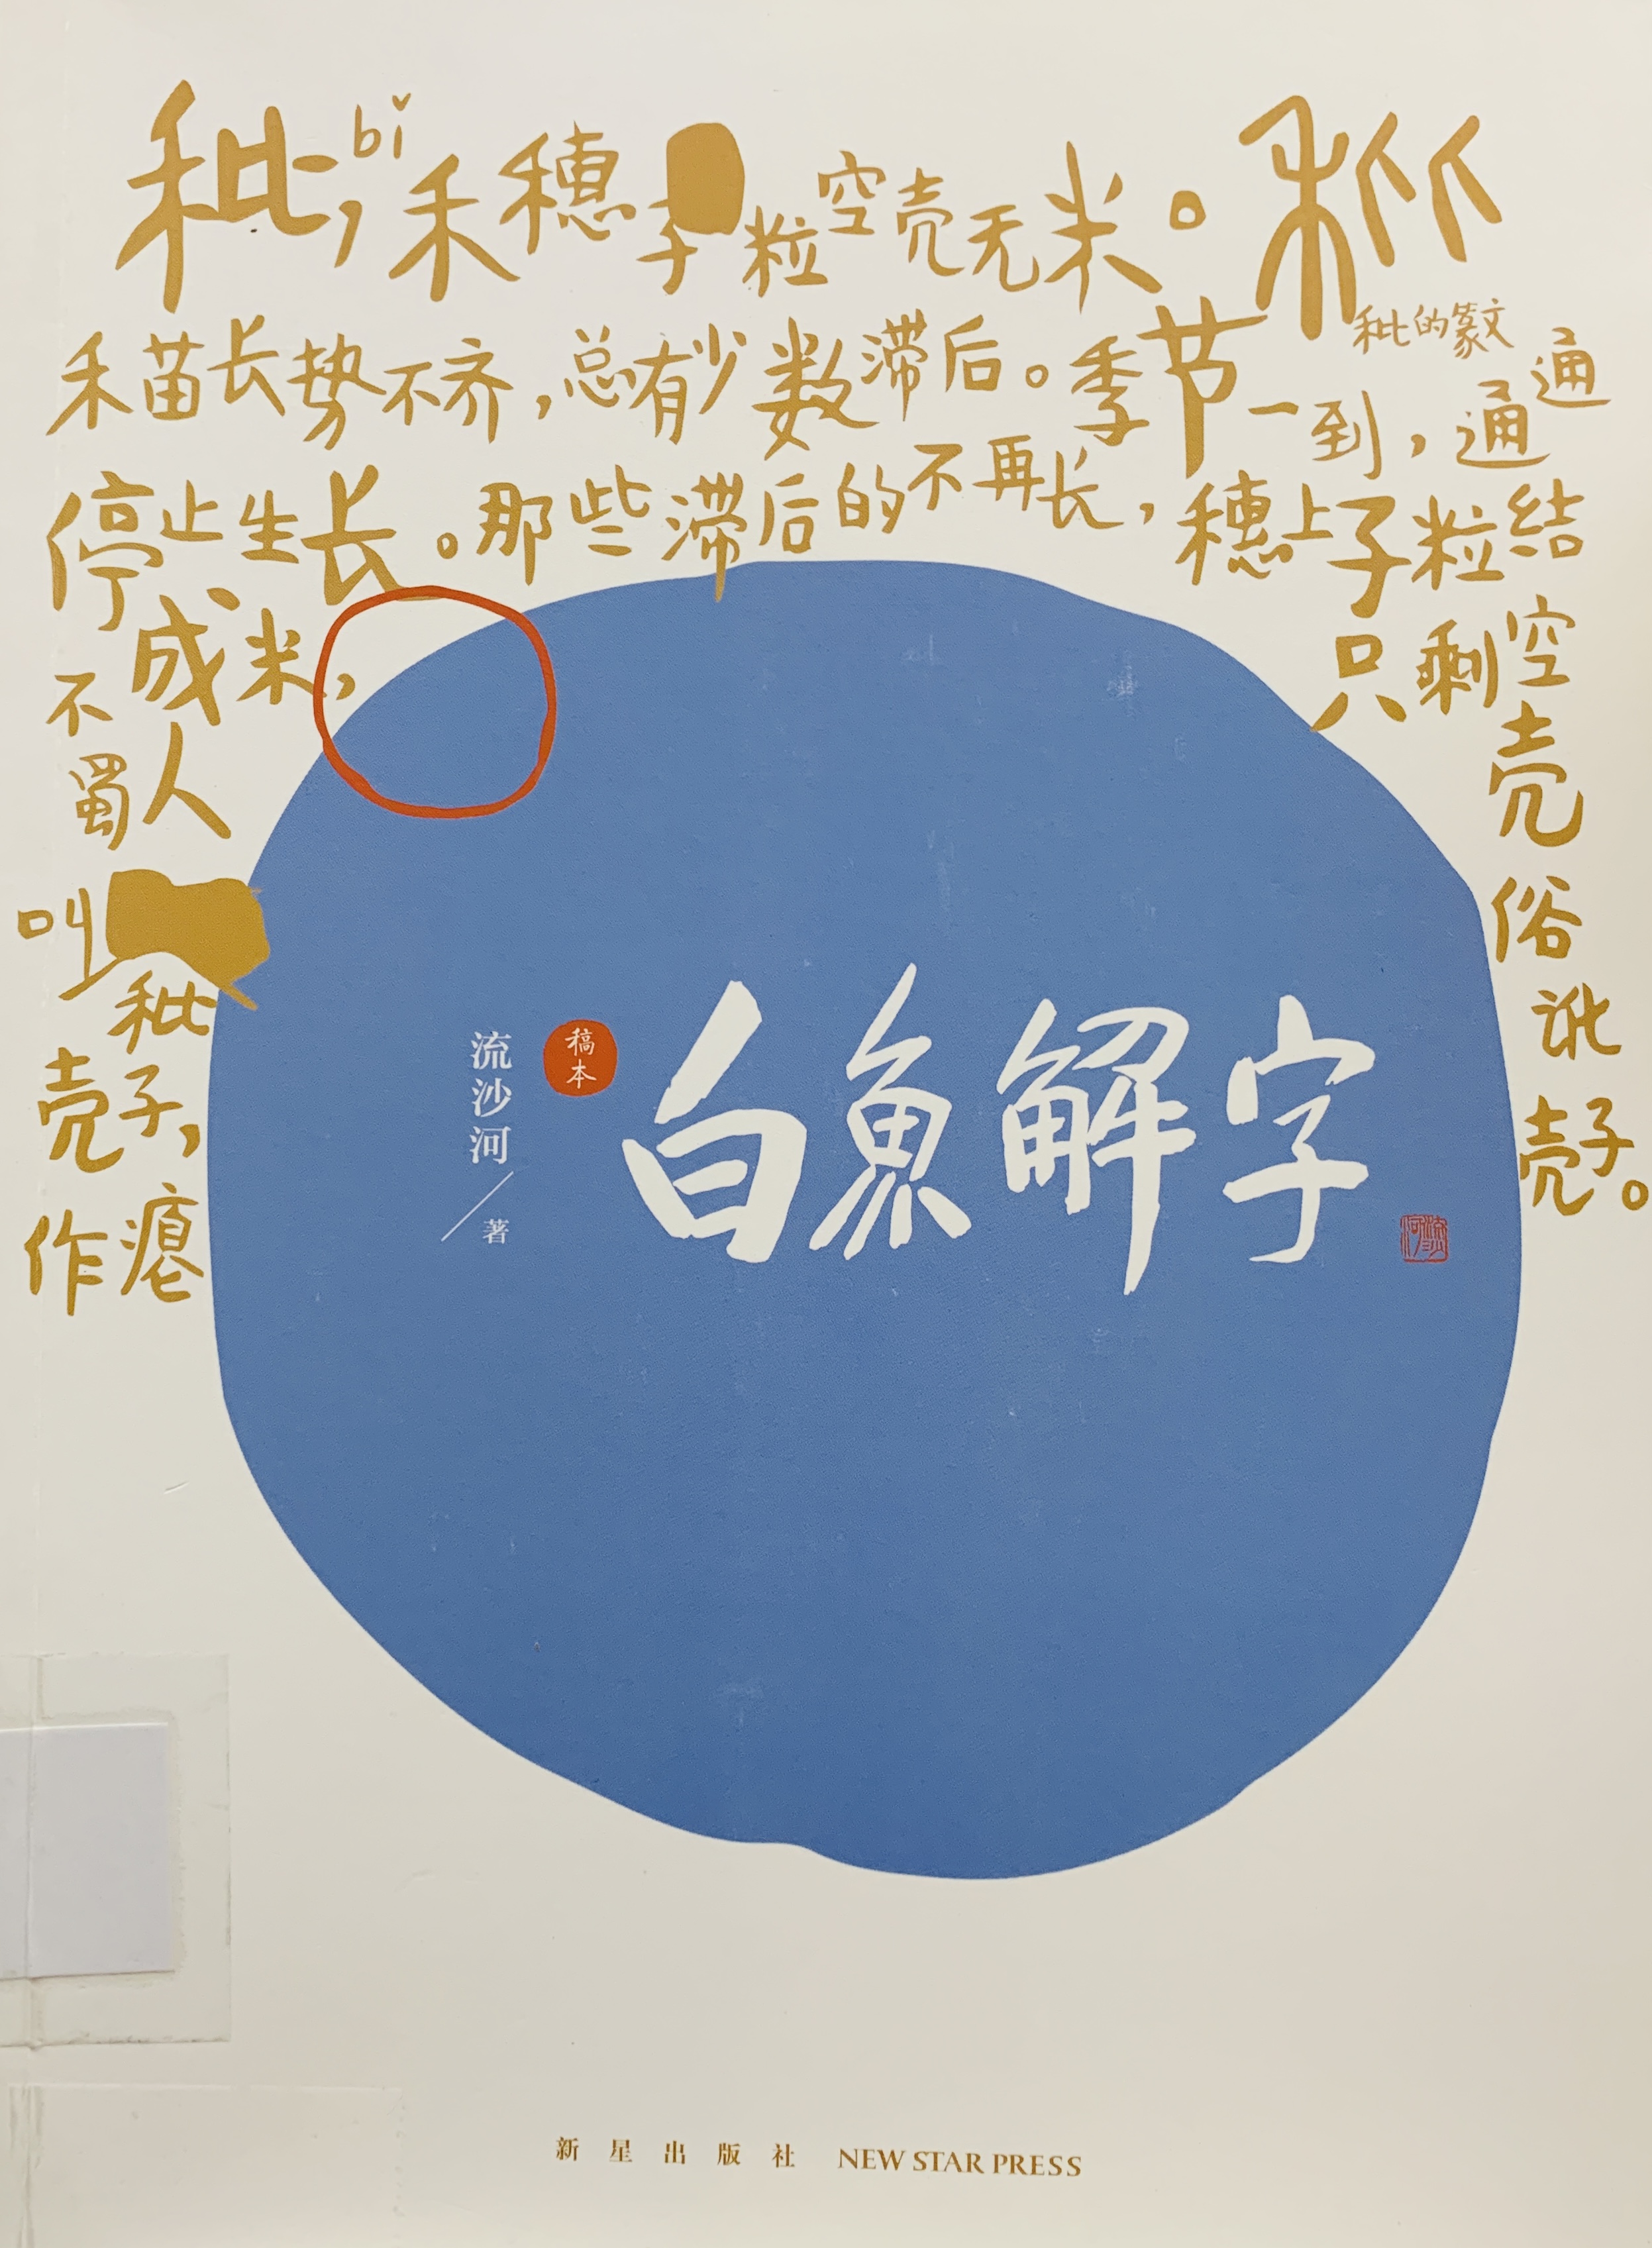 秕,bǐ禾穗子粒空壳无米。
秕的篆文
禾苗长势不齐,总有少数滞后。季节一到,通通
停止生长。那些滞后的不再长,穗上子粒结
不成米,只剩空
蜀人壳俗
叫秕讹
壳子,壳子。
作
白鱼解字
稿本
流沙河/著
流沙河
新星出版社 NEW STAR PRESS